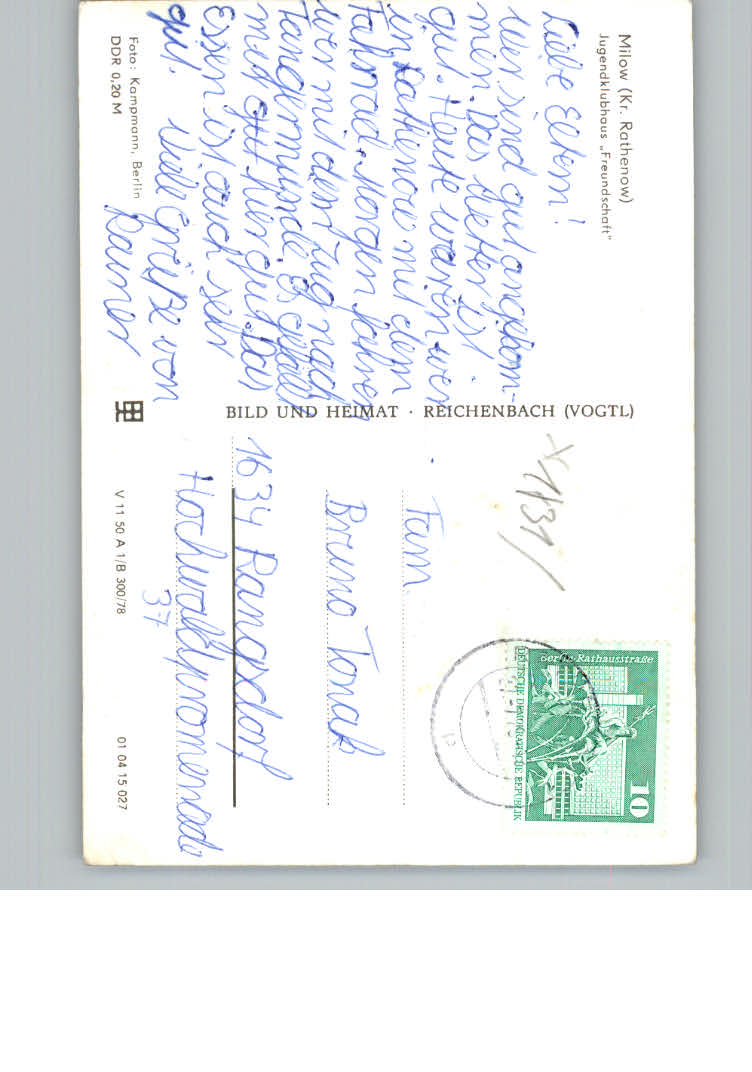 Milow (Kr. Rathenow)
Jugendklubhaus „Freundschaft"
Liebe Eltern!
Wir sind gut angekom-
men. Das Wetter ist
gut. Heute waren wir
in Rathenow mit dem
Fahrrad. Morgen fahren
wir mit dem Zug nach
Tangermünde. Es gefällt
mir gut hier gut. Das
Essen ist auch sehr
gut. Viele Grüße von
Rainer
Foto: Kampmann, Berlin
DDR 0,20 M
BILD UND HEIMAT · REICHENBACH (VOGTL)
Fam.
Bruno Tonaß
1634 Rangsdorf
Hochwaldpromenade
37
V 11 50 A 1/B 300/78
01 04 15 027
Berlin-Rathausstraße
10
DEUTSCHE DEMOKRATISCHE REPUBLIK